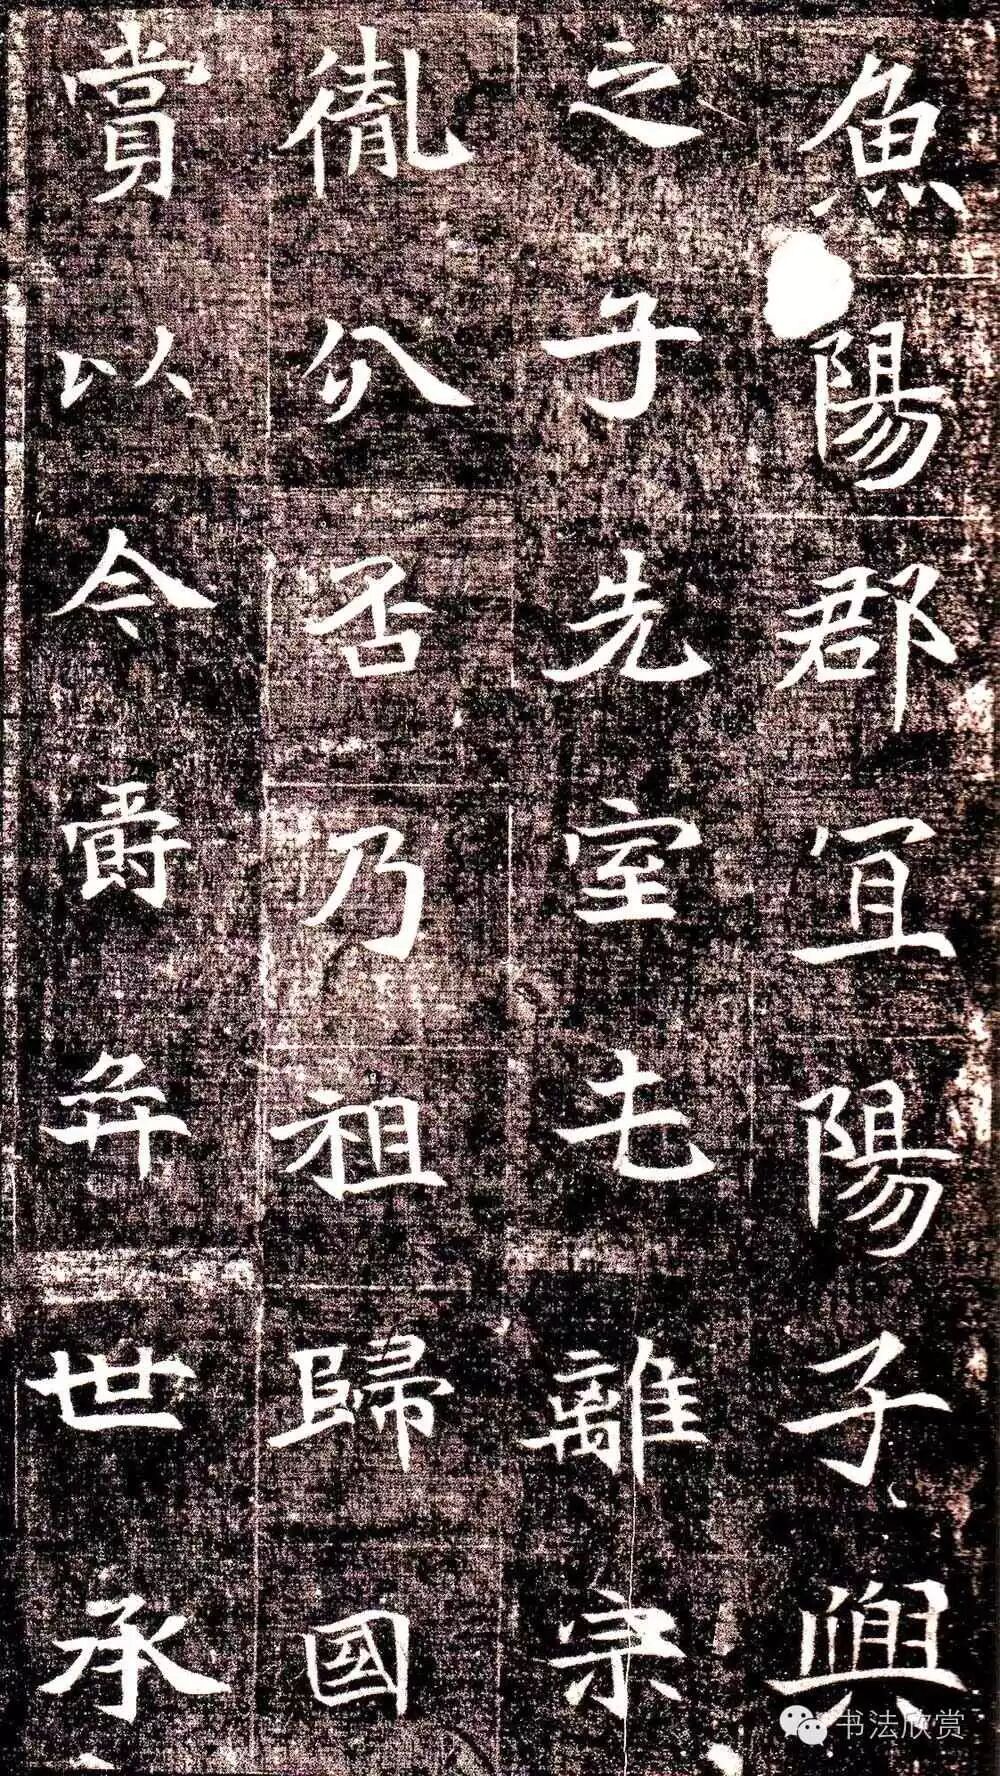 魚陽郡宜陽子興
之子先室屯離宗
胤分否乃祖歸國
賞以今爵弈世承
书法欣赏